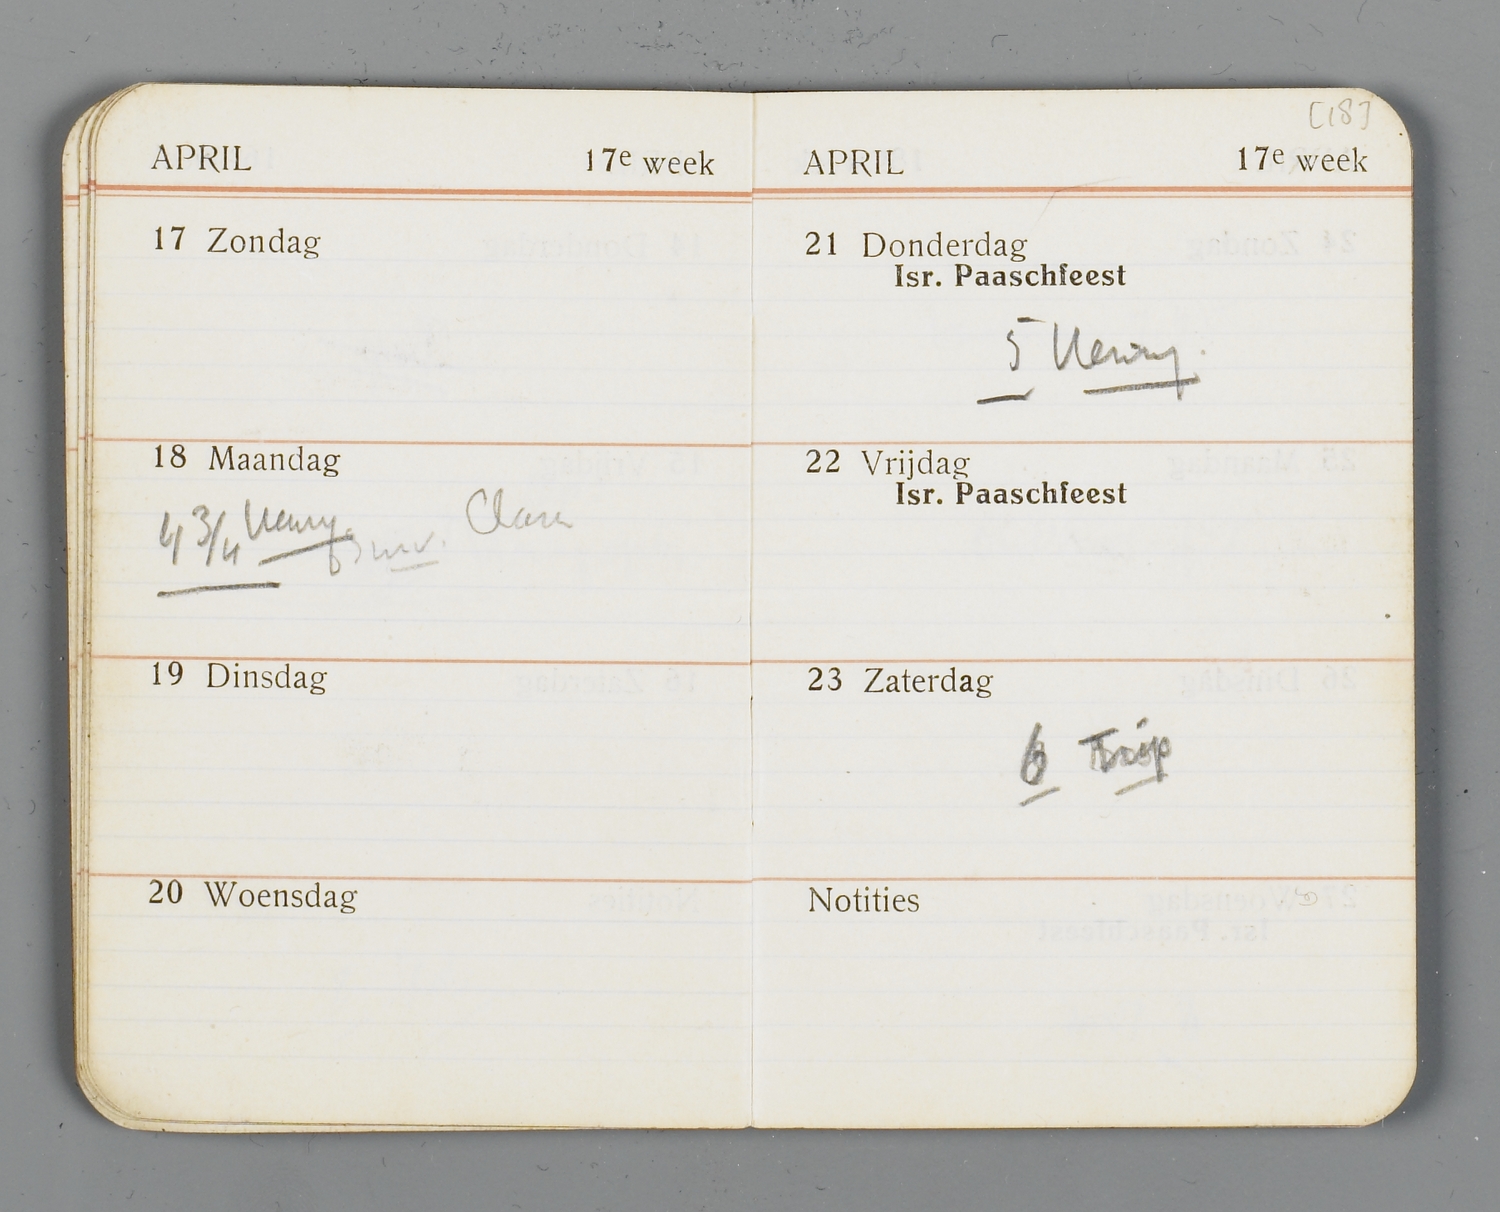 APRIL 17e week
17 Zondag
18 Maandag
4 3/4 Henry Clara
19 Dinsdag
20 Woensdag
[18]
APRIL 17e week
21 Donderdag
Isr. Paaschfeest
5 Henry.
22 Vrijdag
Isr. Paaschfeest
23 Zaterdag
6
Notities